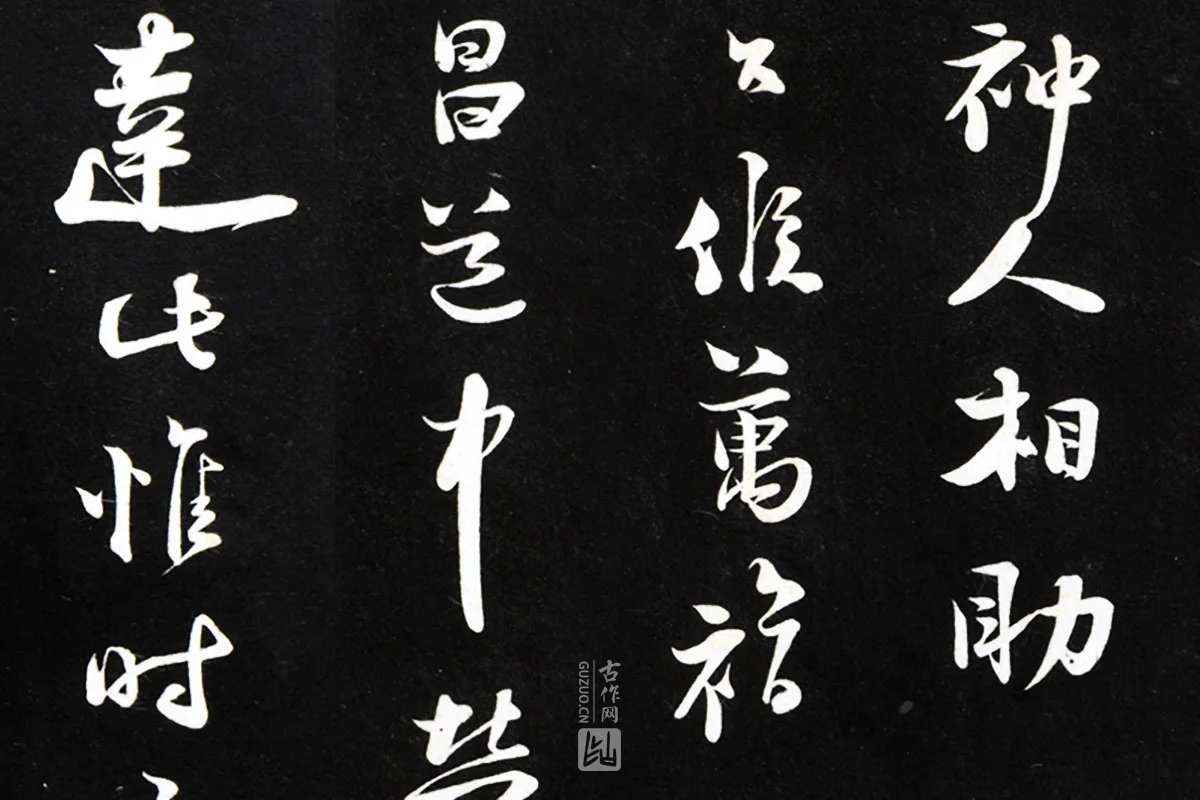 神人相助
台候萬福
昌道中
達此惟時
古作网
GUZUO.CN